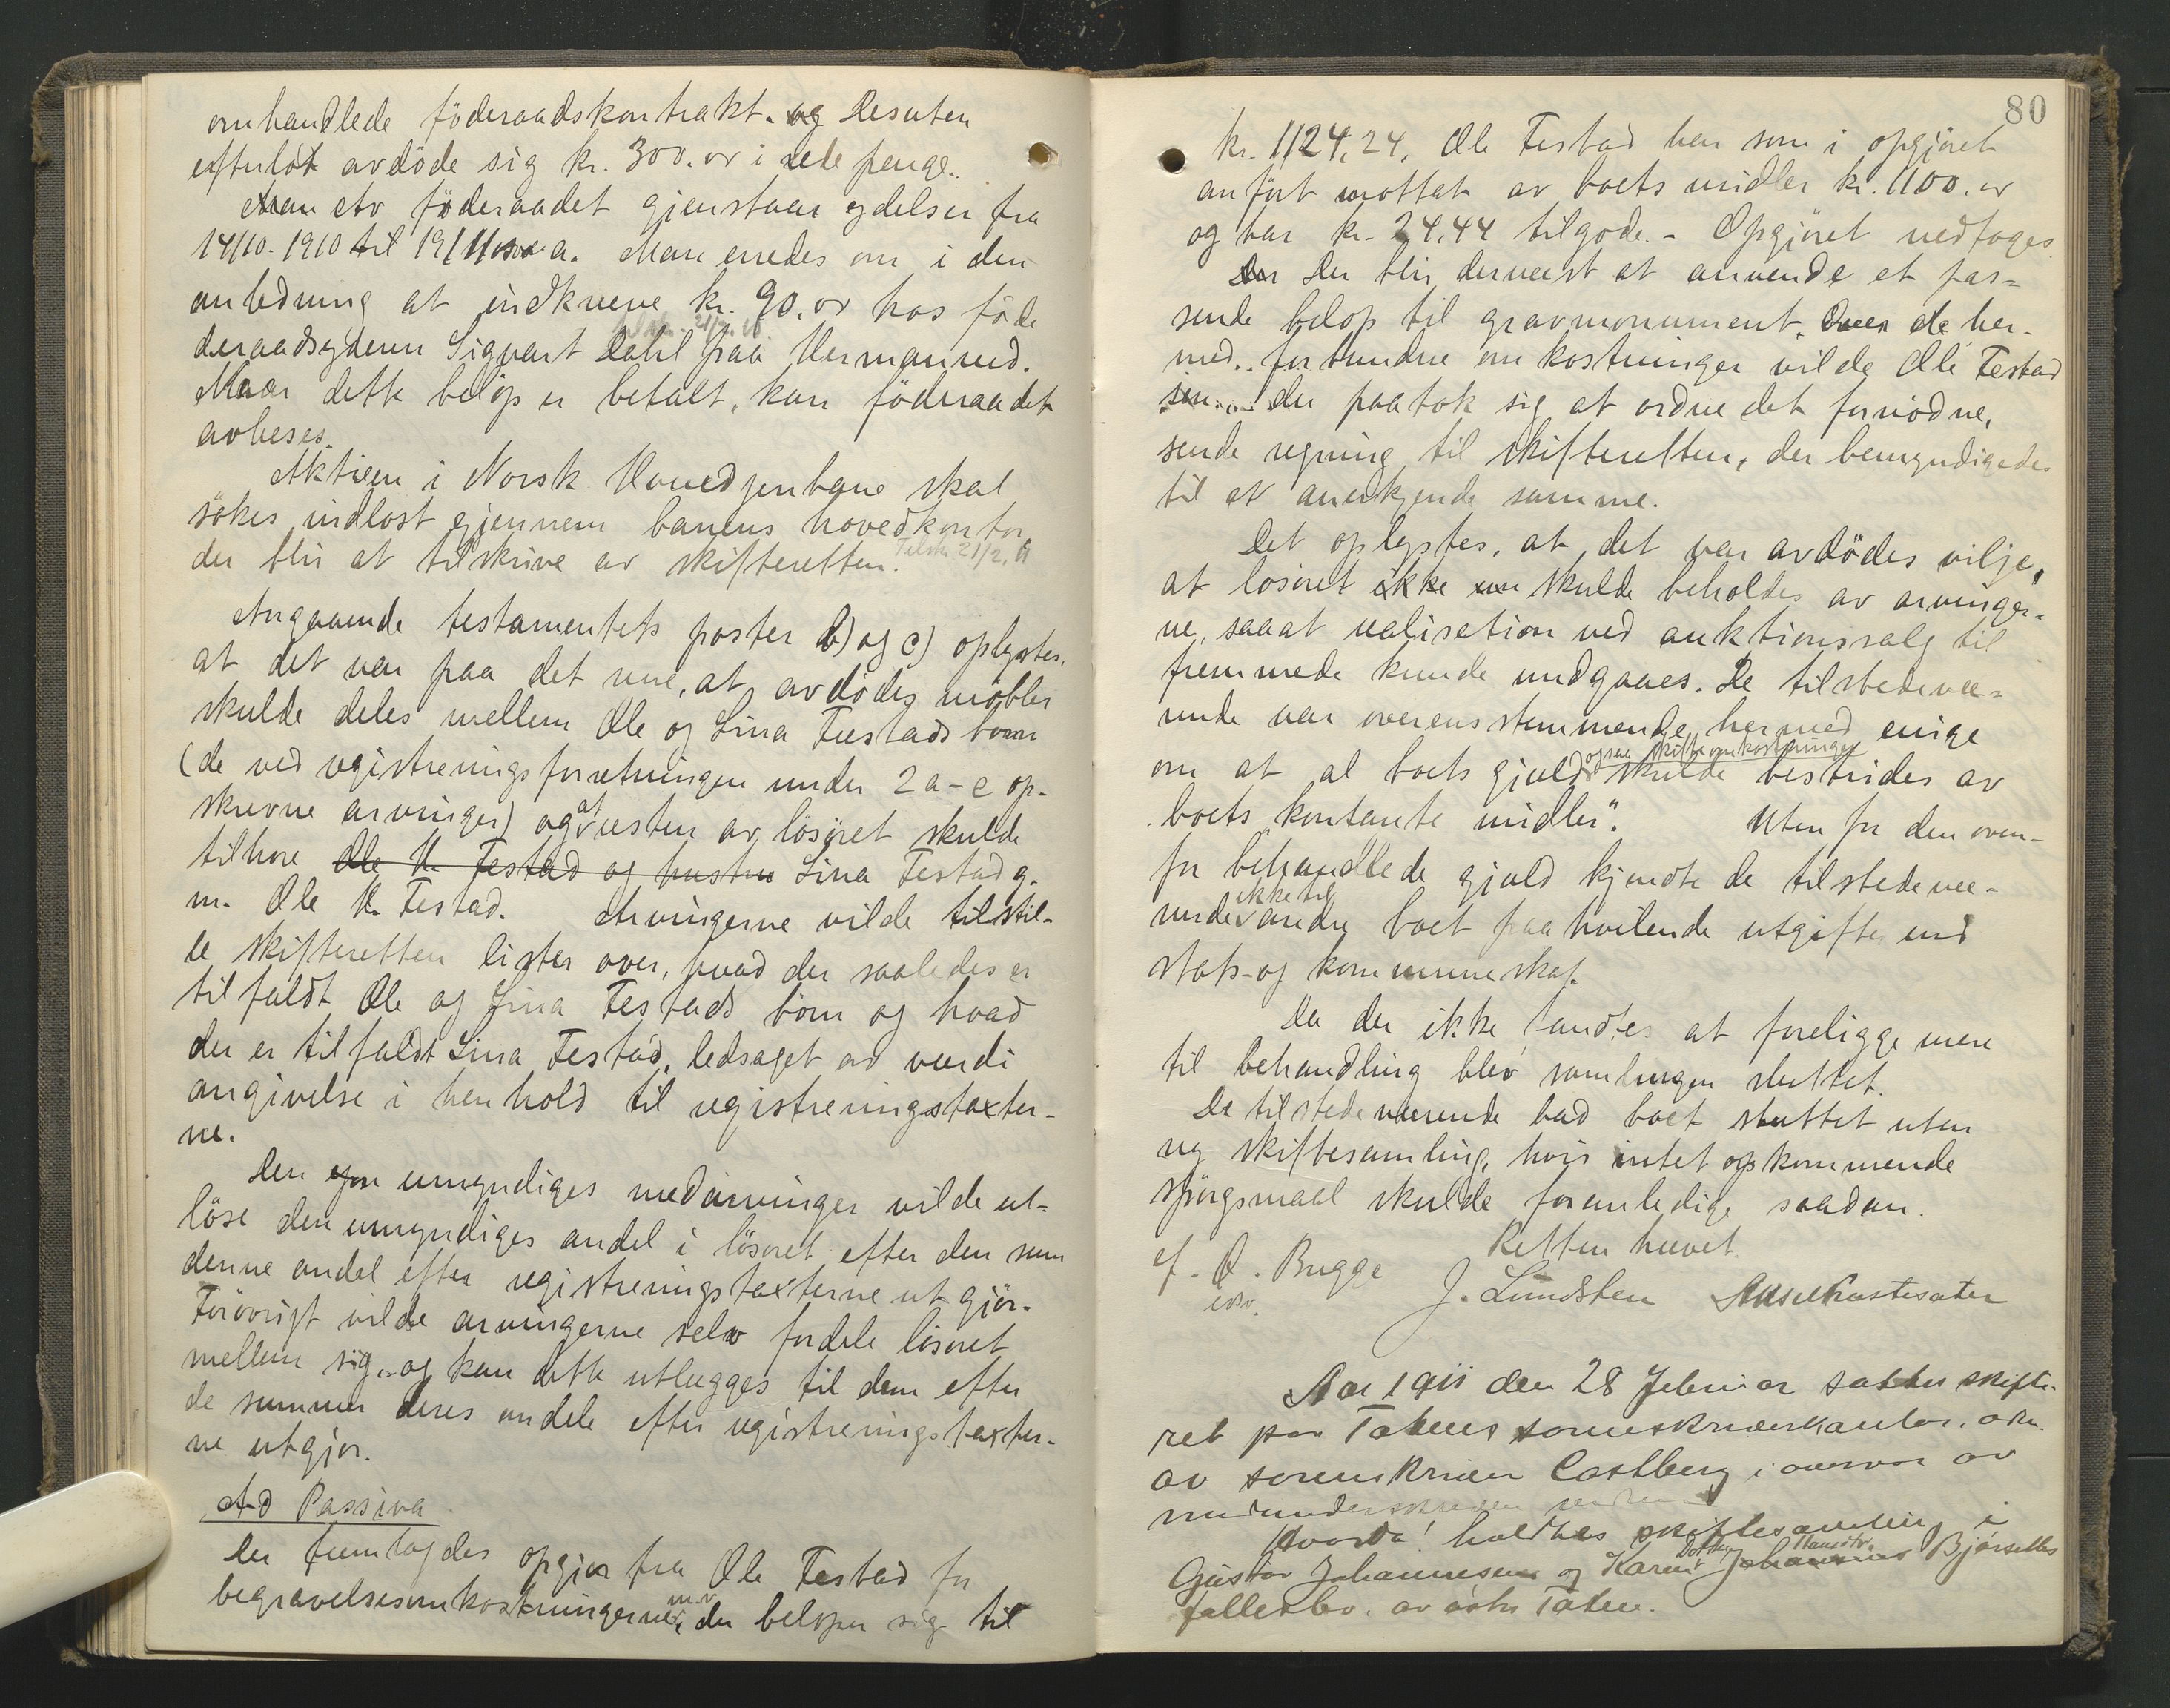 omhandlede föderaadskontrakt. og Desuten
efterlot avdöde sig kr. 300.00 i rede penge.
Man Av föderaadet gjenstaar ydelser fra
14/10-1910 til 19/1 1911 a. Man enedes om i den
anledning at indkræve kr. 90.00 hos föde
deraadsyderen Sigvart Dahl paa Hermanrud.
Naar dette belöp er betalt, kan föderaadet
avlyses.
Aktien i Norsk Hovedjernbane skal
sökes indlöst gjennem banens hovedkontor
der blir at tilskrive av skifteretten. Tilskr. 21/2. 11
Angaaende testamentets poster b) og c) oplystes,
at det var paa det rene, at avdödes möbler
skulde deles mellem Ole og Lina Festads börn
(de ved registreringsforretningen under 2 a-e op-
skrevne arvinger) og at resten av lösöret skulde
tilhöre Ole H. Festad og hustru Lina Festad g.
m. Ole H. Festad. Arvingerne vilde tilstil-
le skifteretten lister over, hvad der saaledes er
tilfaldt Ole og Lina Festads börn og hvad
der er tilfaldt Lina Festad, ledsaget av værdi
angivelse i henhold til registreringstaxter-
ne.
Den umyndiges medarvinger vilde ut-
löse den umyndiges andel i lösöret efter den sum
denne andel efter registreringstaxterne utgjör.
Forövrigt vilde arvingerne selv fordele lösöret
mellem sig og kan dette utlægges til dem efter
de summer deres andele efter registreringstaxter-
ne utgjör.
Ad Passiva
Der fremlagdes opgjör fra Ole Festad for
begravelsesomkostningerne m.v., der belöper sig til
80
kr. 1124,24. Ole Festad har som i opgjöret
anfört mottat av boets midler kr. 1100.00
og har kr. 24,44 tilgode. - Opgjöret vedtoges
Der blir dernæst at anvende et pas-
sende belöp til gravmonument. De her-
med forbundne omkostninger vilde Ole Festad
der paatok sig at ordne det fornödne,
sende regning til skifteretten, der bemyndigedes
til at anerkjende samme.
Det oplystes, at det var avdödes vilje,
at lösöret ikke skulde beholdes av arvinger-
ne, saaat realisation ved auktionssalg til
fremmede kunde undgaaes. De tilstedevæ-
rende var overensstemmende hermed enige
om at al boets gjæld ogsaa skifteomkostninger skulde bestrides av
boets kontante midler. Uten for den oven-
for behandlede gjæld kjendte de tilstedevæ-
rende ikke til andre boet paahvilende utgifter end
stats- og kommuneskat.
Da der ikke fandtes at foreligge mere
til behandling blev samlingen sluttet.
De tilstedeværende bad boet sluttet uten
ny skiftesamling, hvis intet opkommende
spörgsmaal skulde foranledige saadan.
Retten hævet.
ef. O. Bugge
J. Lundsten
Aar 1911 den 28 Februar sattes skifte-
ret paa Totens sorenskriverkontor. adm.
av sorenskriver Castberg i overvær av
medunderskreven
Hvorda! holdtes skiftesamling i
Gustav Johannesen og Karen Johannes Bjørsettes
fællesbo. av östre Toten.